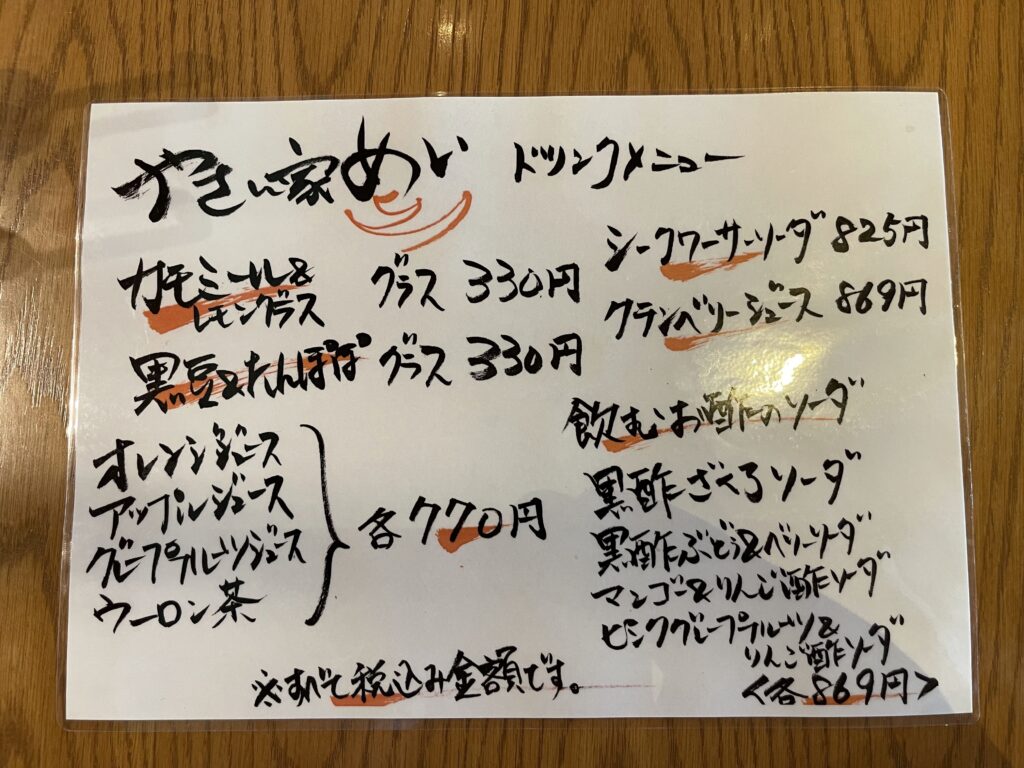 やきに家めい ドリンクメニュー
カモミール&
レモングラス グラス 330円
黒豆&たんぽぽ グラス 330円
オレンジジュース
アップルジュース
グレープフルーツジュース
ウーロン茶
各770円
シークワーサーソーダ 825円
クランベリージュース 869円
飲むお酢のソーダ
黒酢ざくろソーダ
黒酢ぶどう&ベリーソーダ
マンゴー&りんご酢ソーダ
ピンクグレープフルーツ&
りんご酢ソーダ
<各869円>
※すべて税込み金額です。